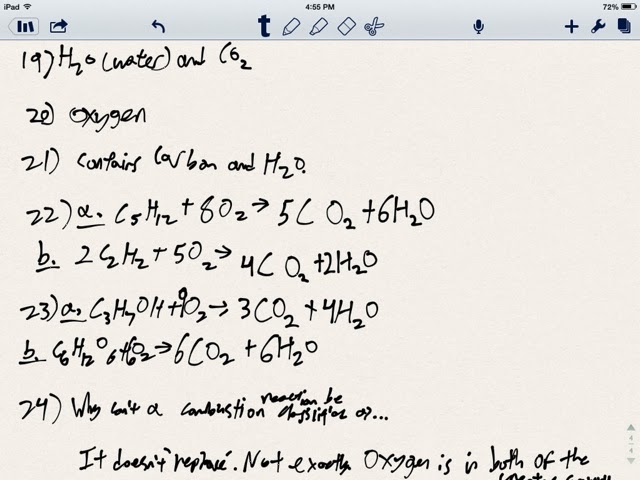 iPad
4:55 PM
72%
19) H₂O (water) and CO₂
20) Oxygen
21) contains Carbon and H₂O.
22) a. C₅H₁₂ + 8O₂ → 5CO₂ + 6H₂O
b. 2C₂H₂ + 5O₂ → 4CO₂ + 2H₂O
23) a. C₃H₇OH + O₂ → 3CO₂ + 4H₂O
b. C₆H₁₂O₆ + 6O₂ → 6CO₂ + 6H₂O
24) Why can't a combustion reaction be as...
It doesn't "replace". Not exactly. Oxygen is in both of the